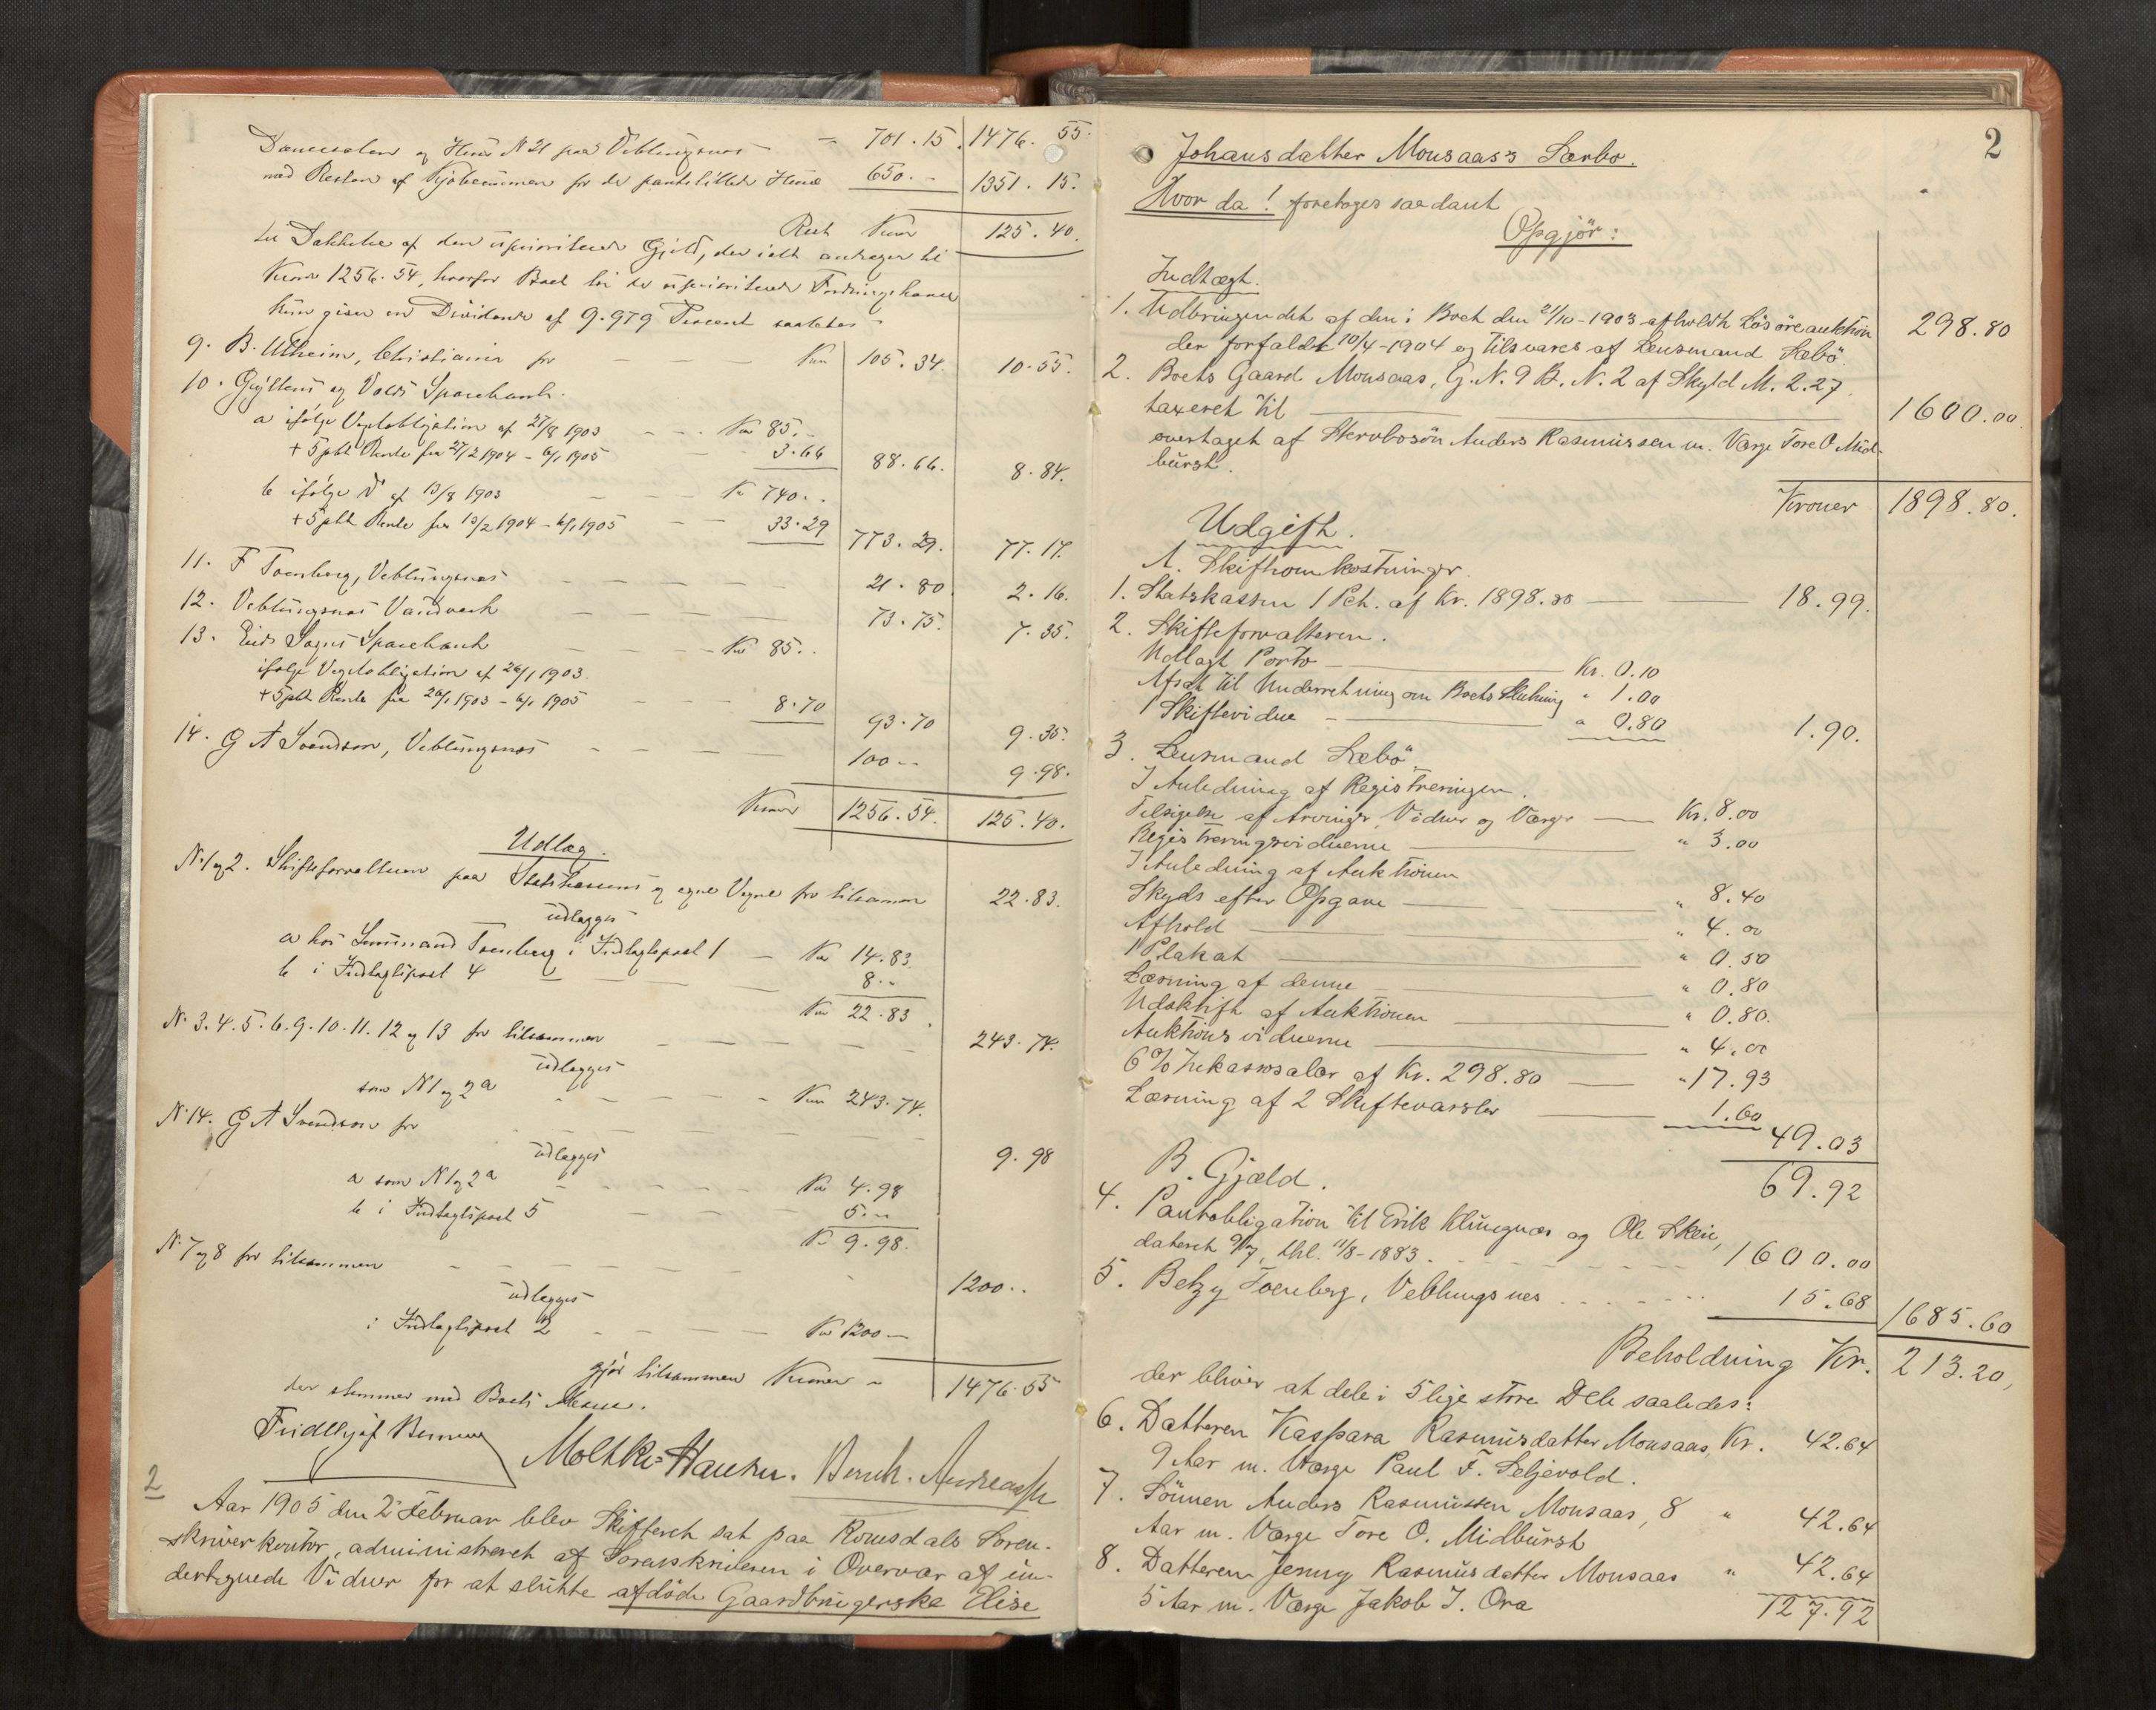 Damesalen og Huus N 21 paa Veblungsnes - 701.15. 1476.55.
med Resten af Kjøbesummen for de pantstillede Huse 650.- 1351.15.
Rest Kroner 125.40.
til Dækkelse af den uprioriterede Gjæld, der ialt andrager til
Kroner 1256.54, hvorfor Boet til de uprioriterede Fordringshavere
kun giver en Dividende af 9.979 Procent saaledes
9. B. Utheim, Christiania for Kr. 105.34. 10.55.
10. Grytten og Volds Sparebank.
a ifølge Vexelobligation af 27/8 1903 Kr 85.-
+ 5 pCt Rente fra 27/2 1904 - 6/1 1905 3.66 88.66. 8.84.
b ifølge Do af 13/8 1903 Kr 740..
+ 5 pCt Rente fra 13/2 1904 - 6/1 1905 33.29 773.29. 77.17.
11. F Toenberg, Veblungsnes 21.80 2.16.
12. Veblungsnes Vandverk 73.75. 7.35.
13. Eids Sogns Sparebank Kr 85..
ifølge Vexelobligation af 26/1 1903.
+ 5 pCt Rente fra 26/1 1903 - 6/1 1905 8.70 93.70 9.35.
14. G A Svendson, Veblungsnes 100-- 9.98.
Kroner 1256.54. 125.40.
Udlæg.
N. 1 og 2. Skifteforvalteren paa Statskassens og egne Vegne for tilsammen 22.83.
udlægges
a hos Lensmand Toenberg i Indtægtspost 1 - Kr 14.83.
b i Indtægtspost 4 8.-
Kr 22.83.
N. 3. 4. 5. 6. 9. 10. 11. 12 og 13 for tilsammen 243.74.
udlægges
som N 1 og 2a Kr 243.74.
N. 14. G A Svendson for 9.98
udlægges
a som N 1 og 2a Kr 4.98
b i Indtægtspost 5 5.--
Kr 9.98.
N. 7 og 8 for tilsammen 1200..
udlægges
i Indtægtspost 2 Kr 1200-
gjør tilsammen Kroner 1476.55
der stemmer med Boets Masse.
Moltke-Hansen. Bernh. Andreassen
2
Aar 1905 den 2 Februar blev Skifteret sat paa Romsdals Soren-
skriverkontor, administreret af Sorenskriveren i Overvær af un-
dertegnede Vidner for at slutte afdøde Gaardbrugerske Elise
2
Johansdatter Monsaas's Sterbo.
Hvor da! foretoges saadant
Opgjör:
Indtægt.
1. Udbringendet af den i Boet den 21/10-1903 afholdte Lösöreauktion 298.80
der forfaldt 10/4-1904 og tilsvares af Lensmand Sæbö.
2. Boets Gaard Monsaas, G. N. 9 B. N. 2 af Skyld M. 2.27,
taxeret til 1600.00.
overtaget af Stervbosön Anders Rasmussen m. Værge Tore O. Mid-
burst.
Kroner 1898.80.
Udgift.
A. Skifteomkostninger.
1. Statskassen 1 Pct. af Kr. 1898.80 18.99.
2. Skifteforvalteren.
Udlagt Porto Kr. 0.10
Afsat til Underretning om Boets Slutning " 1.00
1 Skiftevidne " 0.80 1.90.
3. Lensmand Sæbö.
I Anledning af Registreringen.
Tilsigelse af Arvinger, Vidner og Værger Kr. 8.00
Registreringsvidnerne " 3.00
I Anledning af Auktionen
Skyds efter Opgave " 8.40
Afhold " 4.00
1 Plakat " 0.50
Læsning af denne " 0.80
Udskrift af Auktionen " 0.80.
Auktionsvidnerne " 4.00
6 % Inkassosalær af Kr. 298.80 " 17.93
Læsning af 2 Skiftevarsler 1.60
49.03
69.92
B. Gjæld.
4. Pantobligation til Erik Klungnæs og Ole Skeie,
dateret 9/7, thl. 11/8-1883. 1600.00
5. Betzy Toenberg, Veblungsnes 15.68 1685.60
Beholdning Kr. 213.20,
der bliver at dele i 5 lige store Dele saaledes:
6. Datteren Kaspara Rasmusdatter Monsaas, Kr. 42.64
9 Aar m. Værge Paul F. Seljevold.
7. Sönnen Anders Rasmussen Monsaas, 8 " 42.64
Aar m. Værge Tore O. Midburst
8. Datteren Jenny Rasmusdatter Monsaas " 42.64
5 Aar m. Værge Jakob J. Ora 127.92